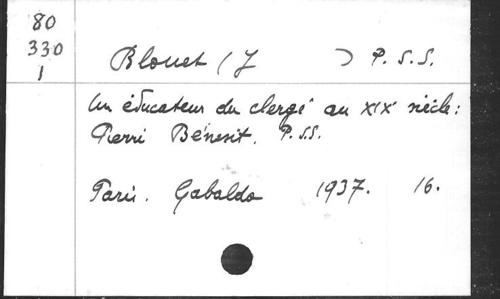 80
330
1
Blouet (J ) P.S.S.
Un éducateur du clergé au XIXe siècle :
Pierre Bénesit, P.S.S.
Paris. Gabalda 1937. 16.